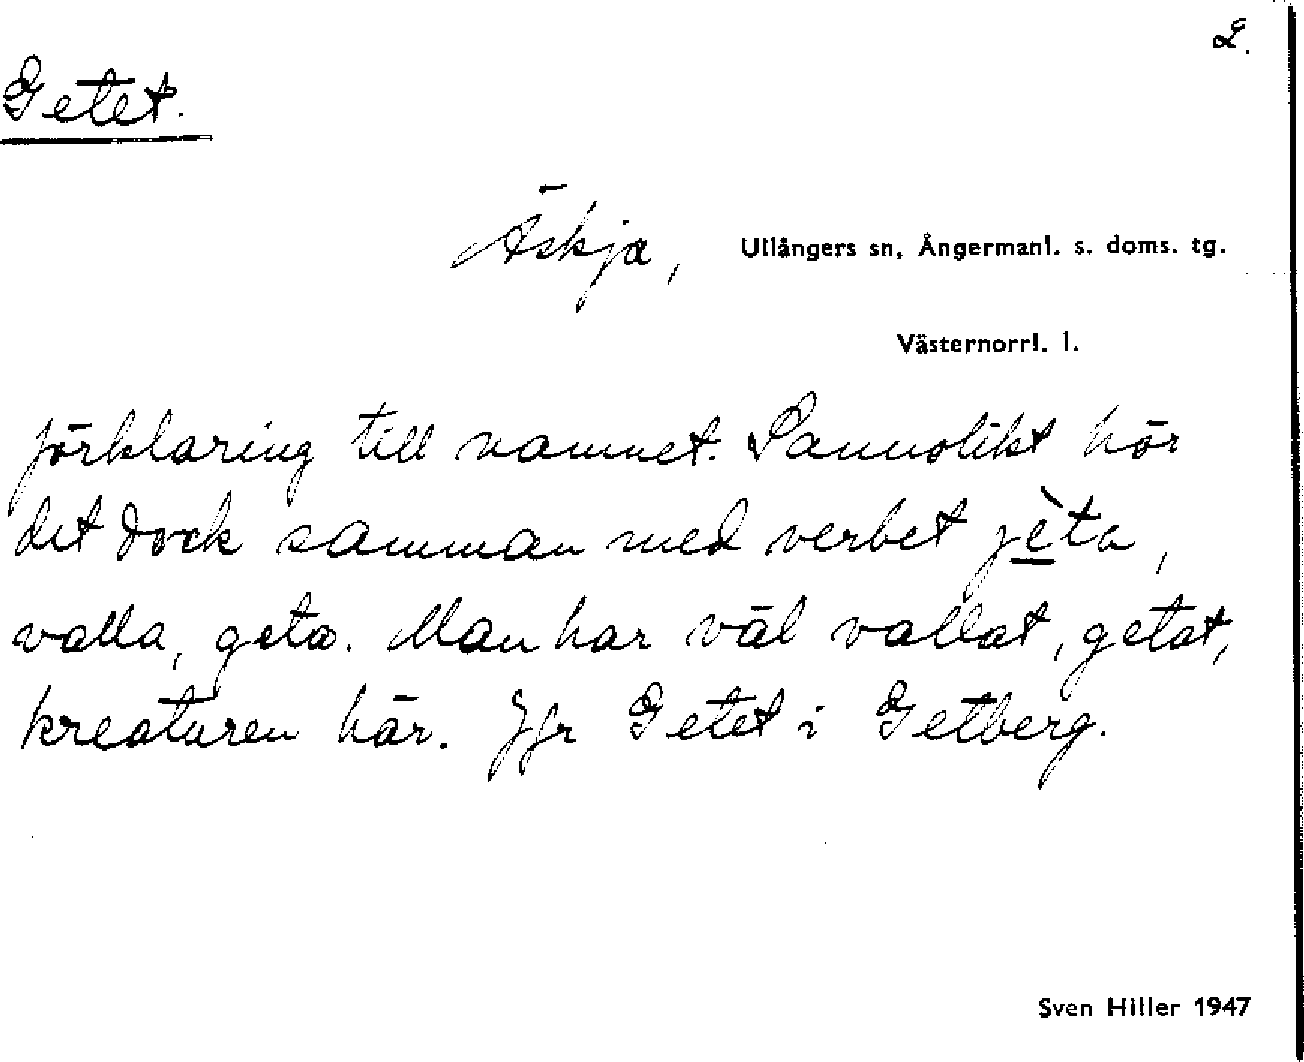 2.
Getet.
Äskja, Ullångers sn, Ångermanl. s. doms. tg.
Västernorrl. l.
förklaring till namnet. Sannolikt hör
det dock samman med verbet jè̱ta,
valla, geta. Man har väl vallat, getat,
kreaturen här. Jfr Getet i Getberg.
Sven Hiller 1947